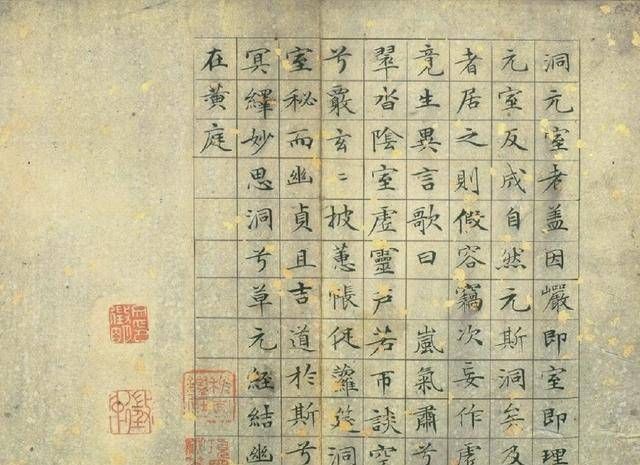 洞元室者盖因巖即室即理
元室反成自然元斯洞矣及
者居之則假容竊次妄作虛
竟生異言歌曰 嵐氣肅兮
翠沓陰室虛靈戶若帀談空
兮覈玄〻披蕙帳促蘿筵洞
室秘而幽貞且吉道於斯兮
冥繹妙思洞兮草元經結幽
在黃庭